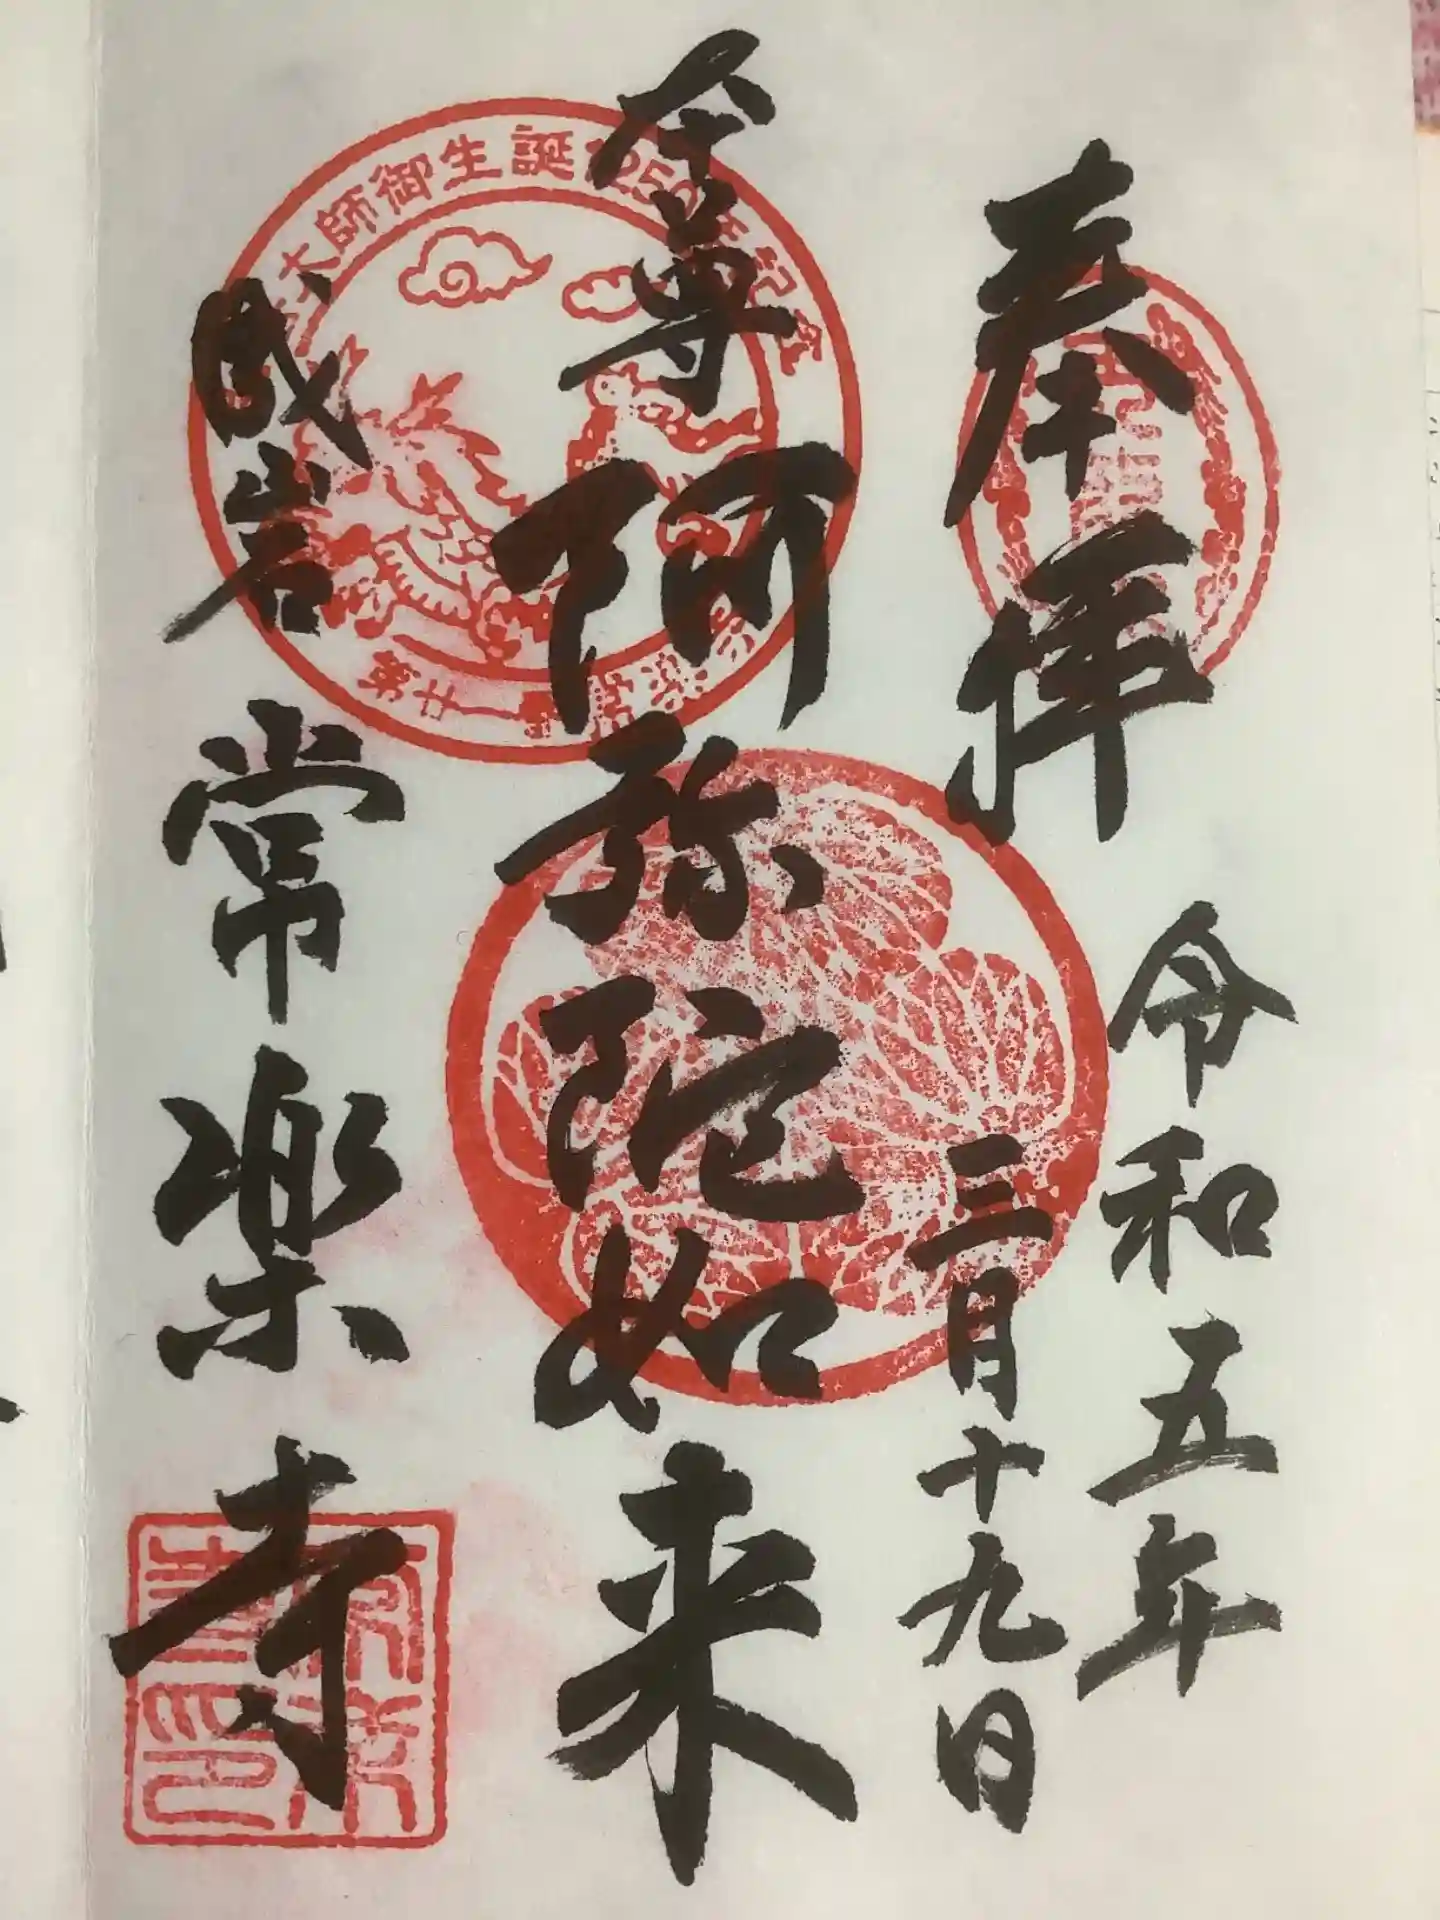 奉拝
令和五年
三月十九日
本尊阿弥陀如来
成岩常楽寺
大師御生誕1250年記念
第廿一番常楽寺